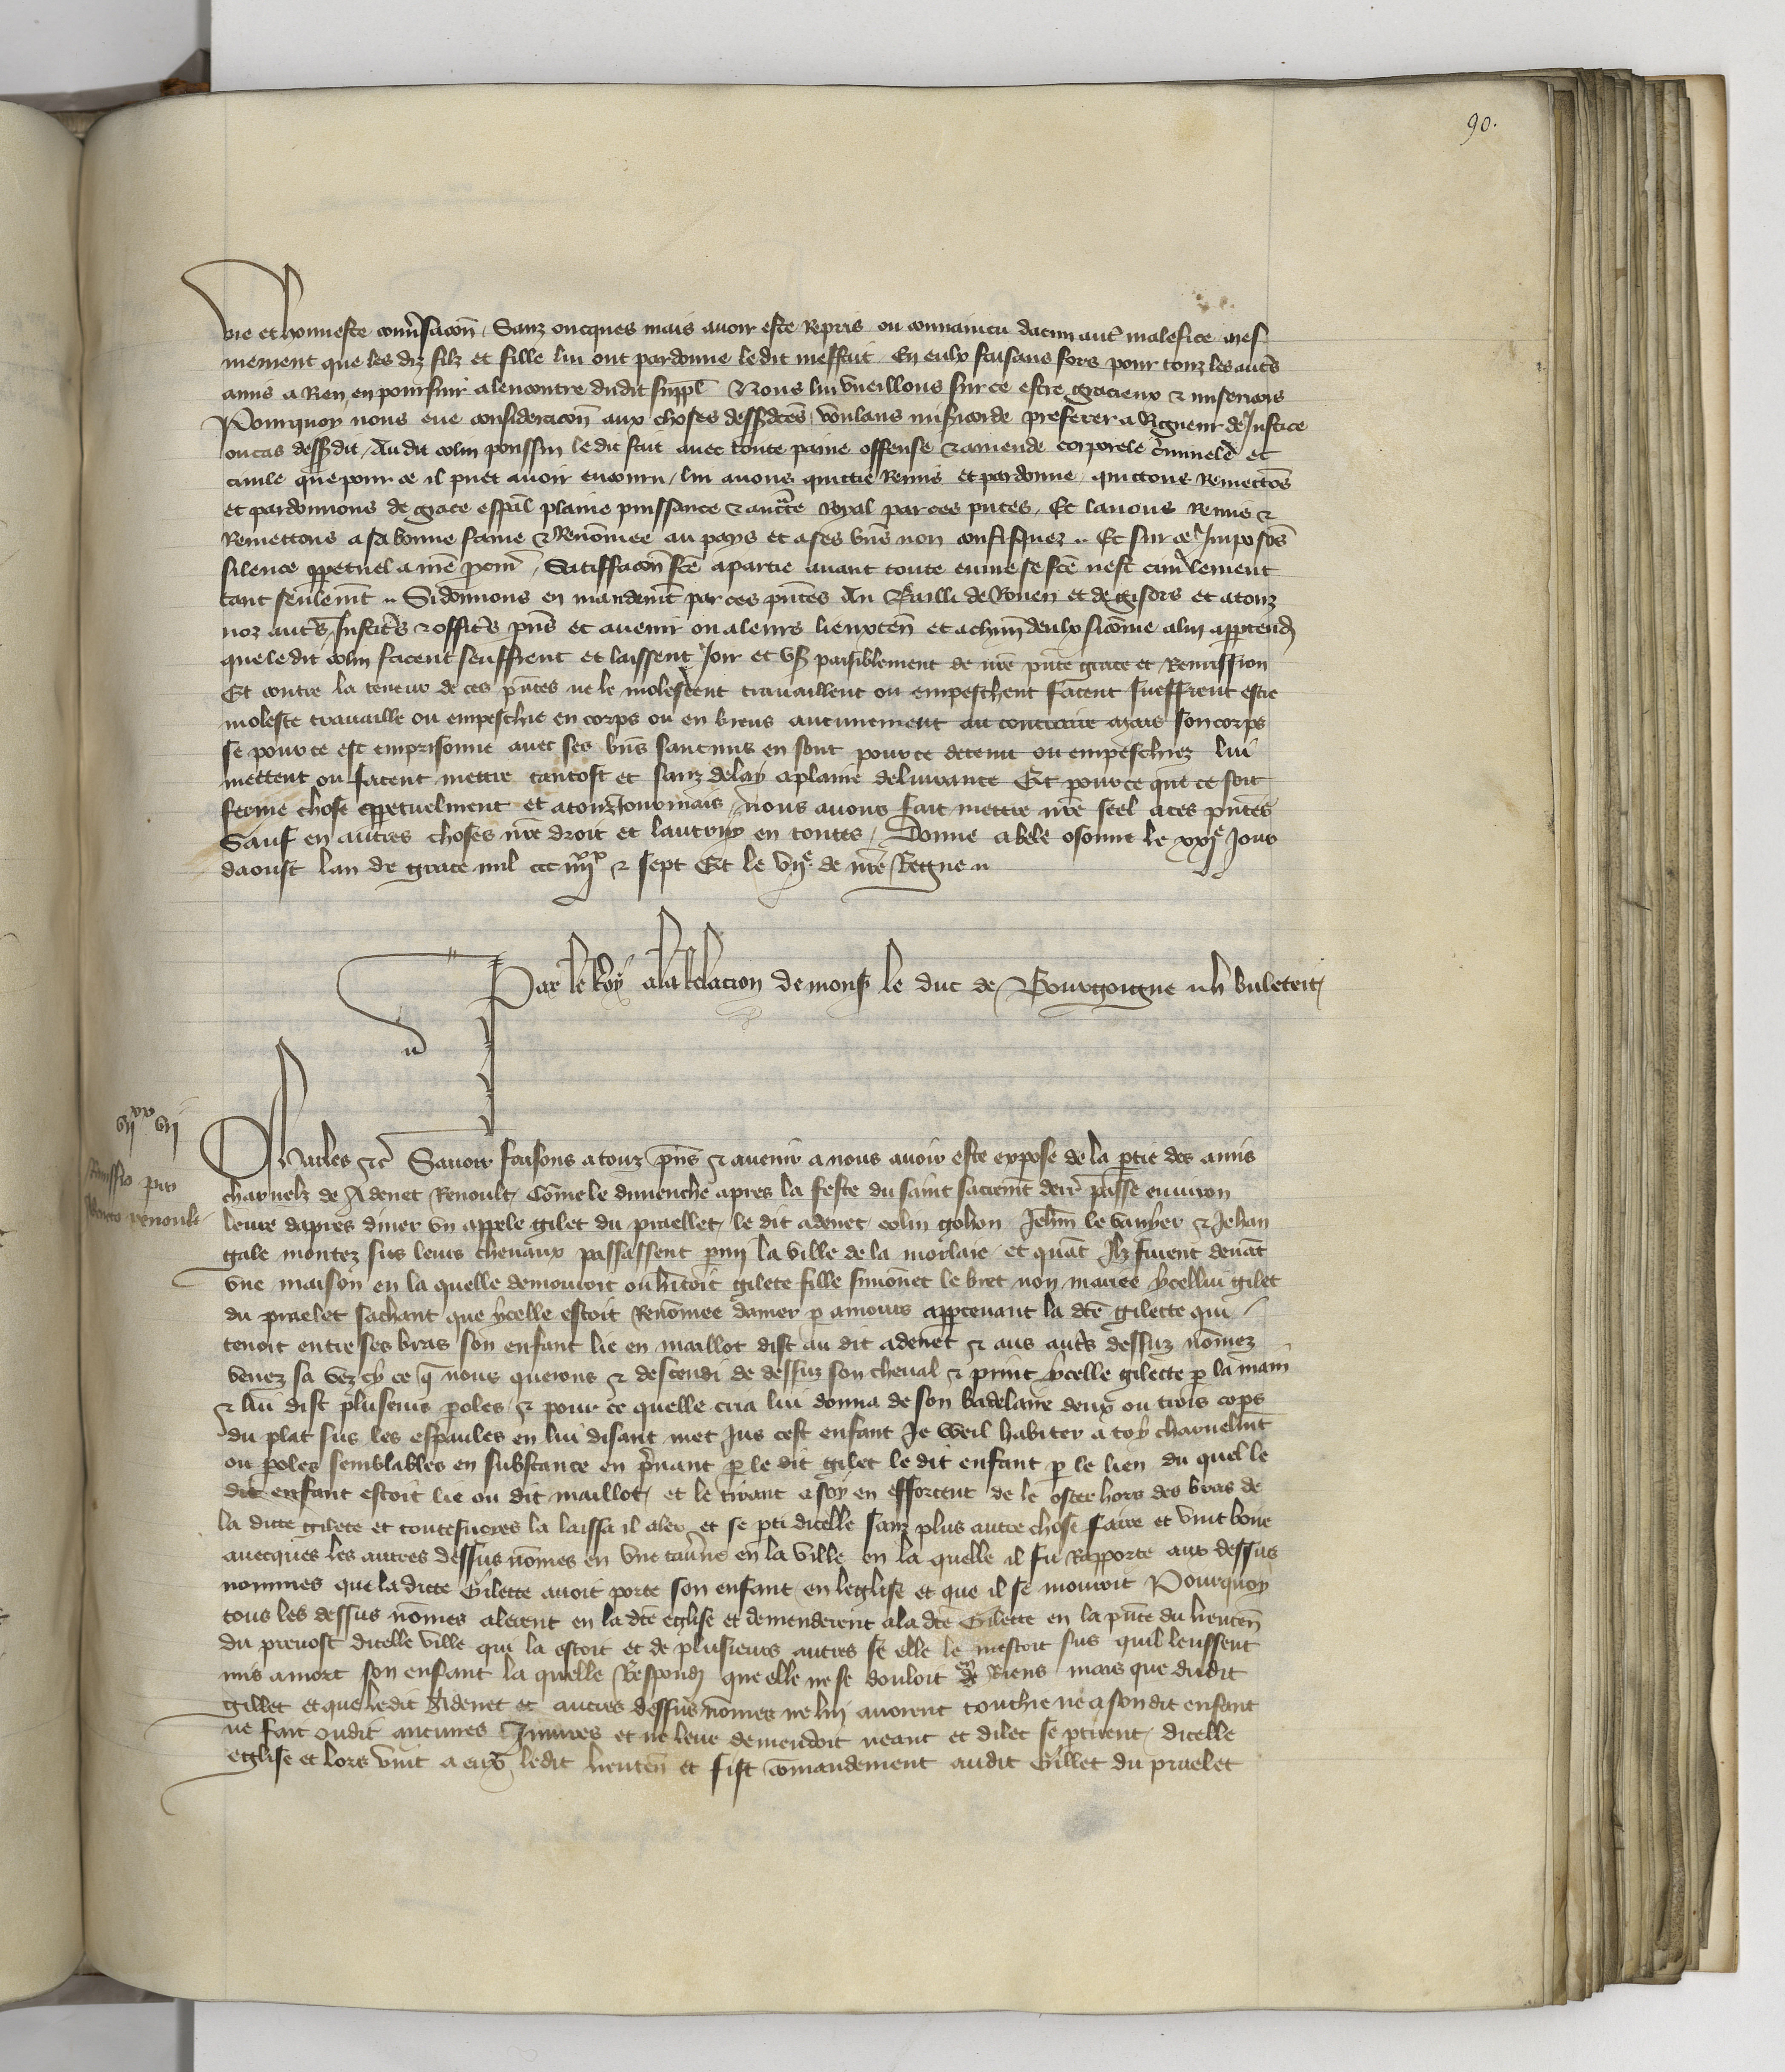 90.
vie et honneste conversacion, Sanz oncques mais avoir este Repris ou convaincu daucun autre malefice mes
mement que les diz filz et fille lui ont pardonne ledit meffait En eulx faisans fors pour touz les autres
amis a Rien en poursuir alencontre dudit suppl Nous lui vueillons sur ce estre gracieux & misericors
Pourquoy nous eue consideracion aux choses dessusdictes voulans misericorde preferer a Rigueur de Justice
ou cas dessusdit, Audit colin poussin ledit fait avec toute paine offense & amende corporele criminele et
civile que pour ce il puet avoir encouru, lui avons quittie Remis et pardonne quittons Remectons
et pardonnons de grace espal plaine puissance & auctorite Royal par ces pntes, Et lavons Remis &
Remettons a sa bonne fame & Renommee au pays et a ses biens non confisquez .. Et sur ce Imposons
silence ppetuel a nre pcur, Satisfacion fcte a partie avant toute euvre se fcte nest civilement
tant seulemt .. Si donnons en mandemt par ces pntes Au Bailli de Rouen et de gisors et a touz
noz autres Justiciers & officiers pns et avenir ou a leurs lieuxten et a chun deulx sicomme a lui appartendra
que ledit colin facent seuffrent et laissent Joir et user paisiblement de nre pnte grace et Remission
Et contre la teneur de ces pntes ne le molestent travaillent ou empeschent facent sueffrent estre
moleste travaille ou empeschie en corps ou en biens aucunement au contraire mais son corps
se pour ce est emprisonne avec ses biens saucuns en sont pour ce detenu ou empeschiez lui
mettent ou facent mettre tantost et sanz delay a plaine delivrance Et pour ce que ce soit
ferme chose ppetuelment et a touzjourmais, nous avons fait mettre nre seel a ces pntes
Sauf en autres choses nre droit et lautruy en toutes, Donne a bele osanne le xxje Jour
daoust lan de grace mil ccc iiijxx & sept Et le vije de nre Regne ..
Par le Roy a la Relacion de mons le duc de Bourgoigne .. h buleteit
vijxx vij
Remissio pro
Adeneto renoult
Charles &c Savoir faisons a touz pns & avenir a nous avoir este expose de la ptie des amis
charnelz de Adenet Renoult, Comme le dimenche apres la feste du saint sacremt derr passe environ
leure dapres diner un appele gilet du praellet, le dit adenet, colin gohon Jehan le vanier & Jehan
gale montez sus leurs chevaux passassent pmy la ville de la morlaie, et quant Ilz furent devant
une maison en la quelle demouroit ou hantoit gilete fille simonet le bret non mariee ycellui gilet
du praelet sachant que ycelle estoit Renommee damer p amours appcevant la dte gilette qui
tenoit entre ses bras son enfant lie en maillot dist au dit adenet & aus autrs dessuz nommez
venez sa vez cy ce q nous querons & descendi de dessuz son cheval & print ycelle gilette p la main
& lui dist plusieurs poles & pour ce quelle cria lui donna de son badelaire deux ou trois cops
du plat sus les espaules en lui disant met Jus cest enfant Je weil habiter a toy charnelmt
ou poles semblables en substance en prenant p le dit gilet le dit enfant p le lien du quel le
dit enfant estoit lie ou dit maillot, et le tirant a soy en efforcent de le oster hors des bras de
la dicte gilete et toutesvoies la laissa il aler et se pti dicelle sanz plus autre chose faire et vint boire
avecques les autres dessus nommes en une taverne en la ville en la quelle il fu Rapporte aux dessus
nommes que la dicte Gilette avoit porte son enfant en leglise et que il se mouroit Pourquoy
tous les dessus nommes alerent en la dte eglise et demenderent a la dte Gilette en la pnte du lieuten
du prevost dicelle ville qui la estoit et de plusieurs autres se elle le mestoit sus quil leussent
mis a mort son enfant la quelle Respondi que elle ne se douloit de Riens mais que dudit
gillet et que ledit Adenet et autres dessus nommes ne luy avoient touchie ne a son dit enfant
ne fait oudit aucunes Injures et ne leur demendoit neant et dilec se ptirent, dicelle
eglise et lors vint a eux ledit lieuten et fist commandement audit Gillet du praelet